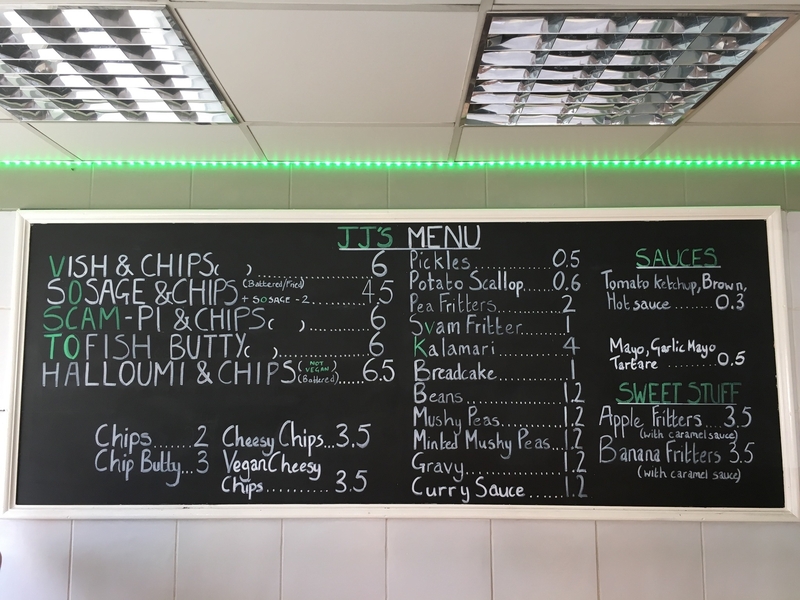 JJ'S MENU
VISH & CHIPS( )..........6
SOSAGE & CHIPS (Battered/Fried) + SOSAGE - 2..........4.5
SCAM-PI & CHIPS( )..........6
TOFISH BUTTY( )..........6
HALLOUMI & CHIPS (NOT VEGAN) (Battered)......6.5
Chips.......2
Chip Butty...3
Cheesy Chips...3.5
Vegan Cheesy
Chips..........3.5
Pickles..........0.5
Potato Scallop....0.6
Pea Fritters.......2
Svam Fritter......1
Kalamari..........4
Breadcake..........1
Beans..........1.2
Mushy Peas.......1.2
Minted Mushy Peas...1.2
Gravy..........1.2
Curry Sauce......1.2
SAUCES
Tomato Ketchup, Brown,
Hot sauce.......0.3
Mayo, Garlic Mayo
Tartare..........0.5
SWEET STUFF
Apple Fritters....3.5
(with caramel sauce)
Banana Fritters 3.5
(with caramel sauce)